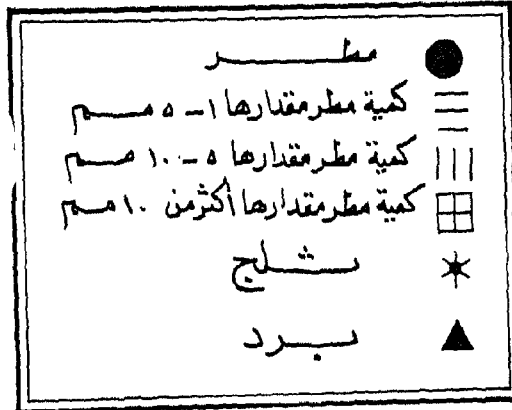 مطر
كمية مطر مقدارها ١ - ٥ مم
كمية مطر مقدارها ٥ - ١٠ مم
كمية مطر مقدارها أكثر من ١٠ مم
ثلج
برد